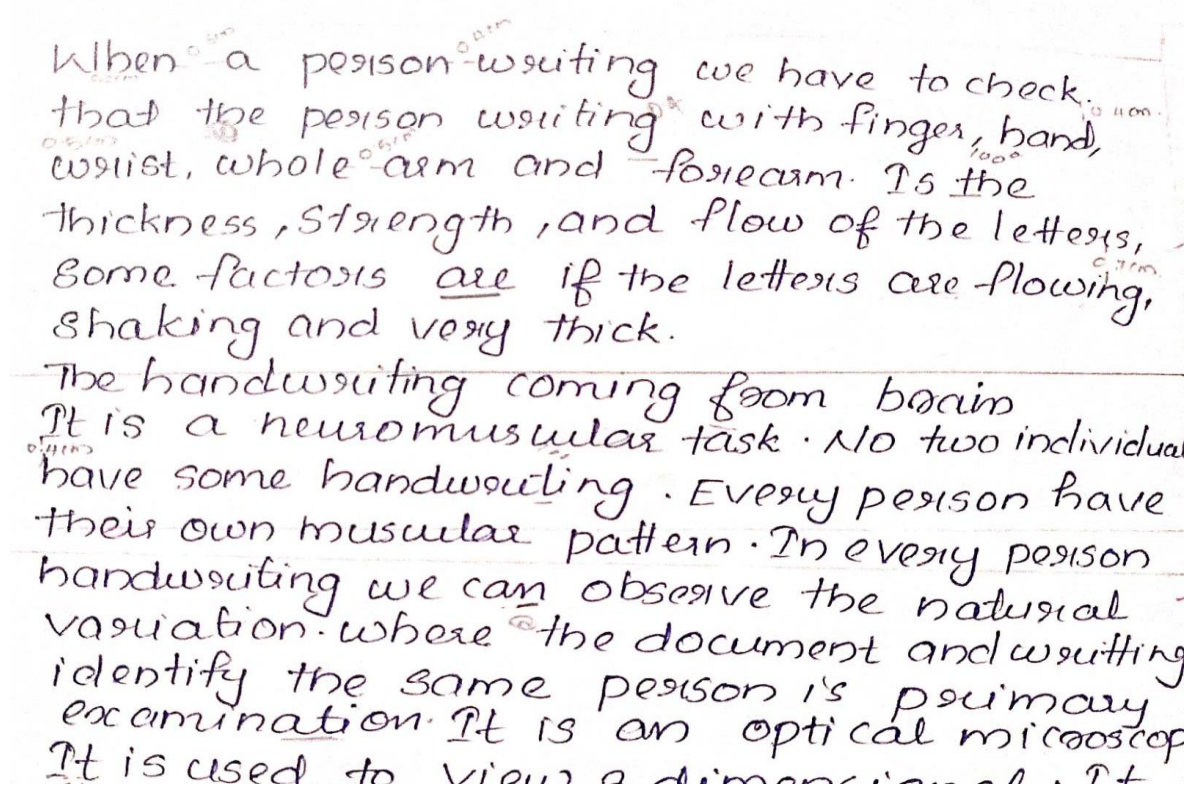 When a person writing we have to check.
that the person writing with finger, hand,
wrist, whole arm and forearm. Is the
thickness, strength, and flow of the letters,
Some factors are if the letters are flowing,
shaking and very thick.
The handwriting coming from brain
It is a neuromuscular task. No two individual
have some handwriting. Every person have
their own muscular pattern. In every person
handwriting we can observe the natural
variation. where the document and writting
identify the same person is primary
examination. It is an optical microscop
It is used to view a dimensional. It